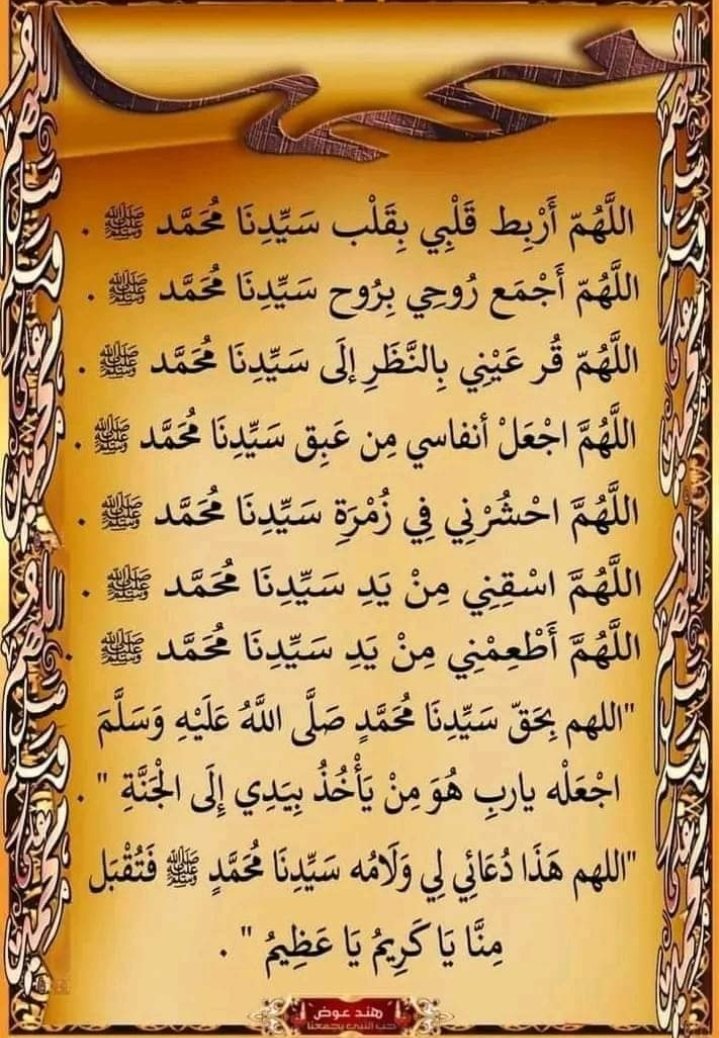 اللَّهُمّ أَرْبِط قَلْبِي بِقَلْب سَيِّدِنَا مُحَمَّد ﷺ .
اللَّهُمّ أَجْمَع رُوحِي بِرُوح سَيِّدِنَا مُحَمَّد ﷺ .
اللَّهُمّ قُر عَيْنِي بِالنَّظَرِ إلَى سَيِّدِنَا مُحَمَّد ﷺ .
اللَّهُمَّ اجْعَلْ أنفاسي مِن عَبِق سَيِّدِنَا مُحَمَّد ﷺ .
اللَّهُمَّ احْشُرْنِي فِي زُمْرَةِ سَيِّدِنَا مُحَمَّد ﷺ .
اللَّهُمَّ اسْقِنِي مِنْ يَدِ سَيِّدِنَا مُحَمَّد ﷺ .
اللَّهُمَّ أَطْعِمْنِي مِنْ يَدِ سَيِّدِنَا مُحَمَّد ﷺ .
"اللهم بِحَقّ سَيِّدِنَا مُحَمَّدٍ صَلَّى اللَّهُ عَلَيْهِ وَسَلَّمَ
اجْعَلْه يارب‍ِ هُوَ مِنْ يَأْخُذُ بِيَدِي إِلَى الْجَنَّةِ " .
"اللهم هَذَا دُعَائِي لِي وَلَامُه سَيِّدِنَا مُحَمَّدٍ ﷺ فَتُقْبَل
مِنَّا يَا كَرِيمُ يَا عَظِيمُ " .
هند عوض
حب النبي يجمعنا